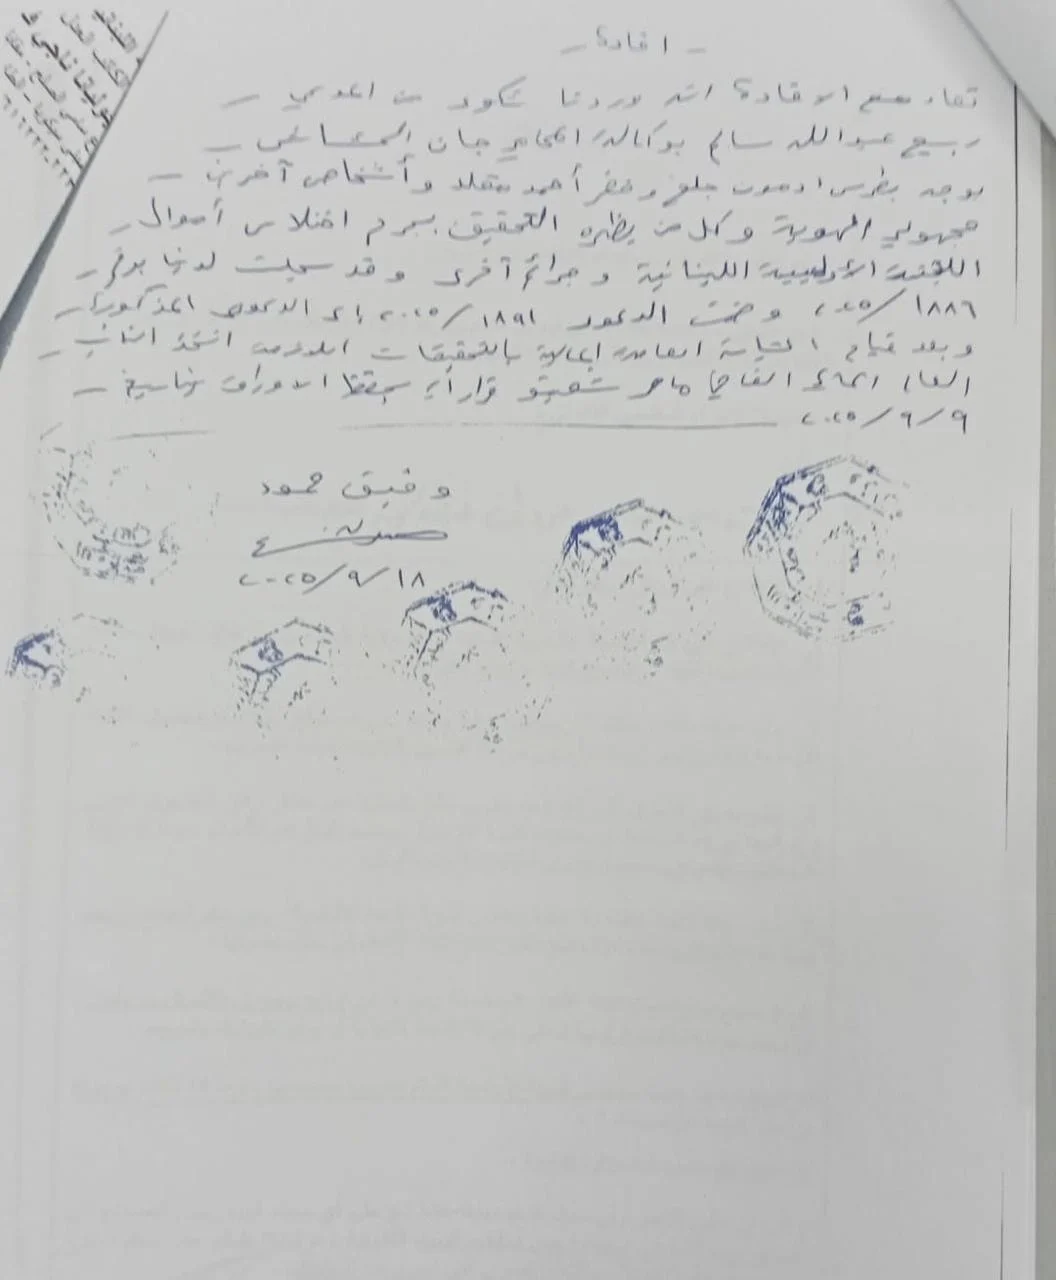 - افادة -
تفاد مع الافادة انه وردنا شكوى من المدعي -
ربيع عبدالله سالم بوكالة المحامي جان الحشاش -
بوجه بطرس ادمون جلخ وخضر أحمد مقلد وأشخاص آخرين -
مجهولي الهوية وكل من يظهره التحقيق بجرم اختلاس أموال -
اللجنة الأولمبية اللبنانية وجرائم أخرى وقد سجلت لدينا برقم -
١٨٨٦/٢٠٢٥ وضمت الدعوى ١٨٩١/٢٠٢٥ إلى الدعوى المذكورة -
وبعد قيام النيابة العامة المالية بالتحقيقات اللازمة اتخذ النائب -
العام المالي القاضي ماهر شعيتو قراراً بحفظ الاوراق بتاريخ -
٩/٩/٢٠٢٥
وفيق حمود
١٨/٩/٢٠٢٥